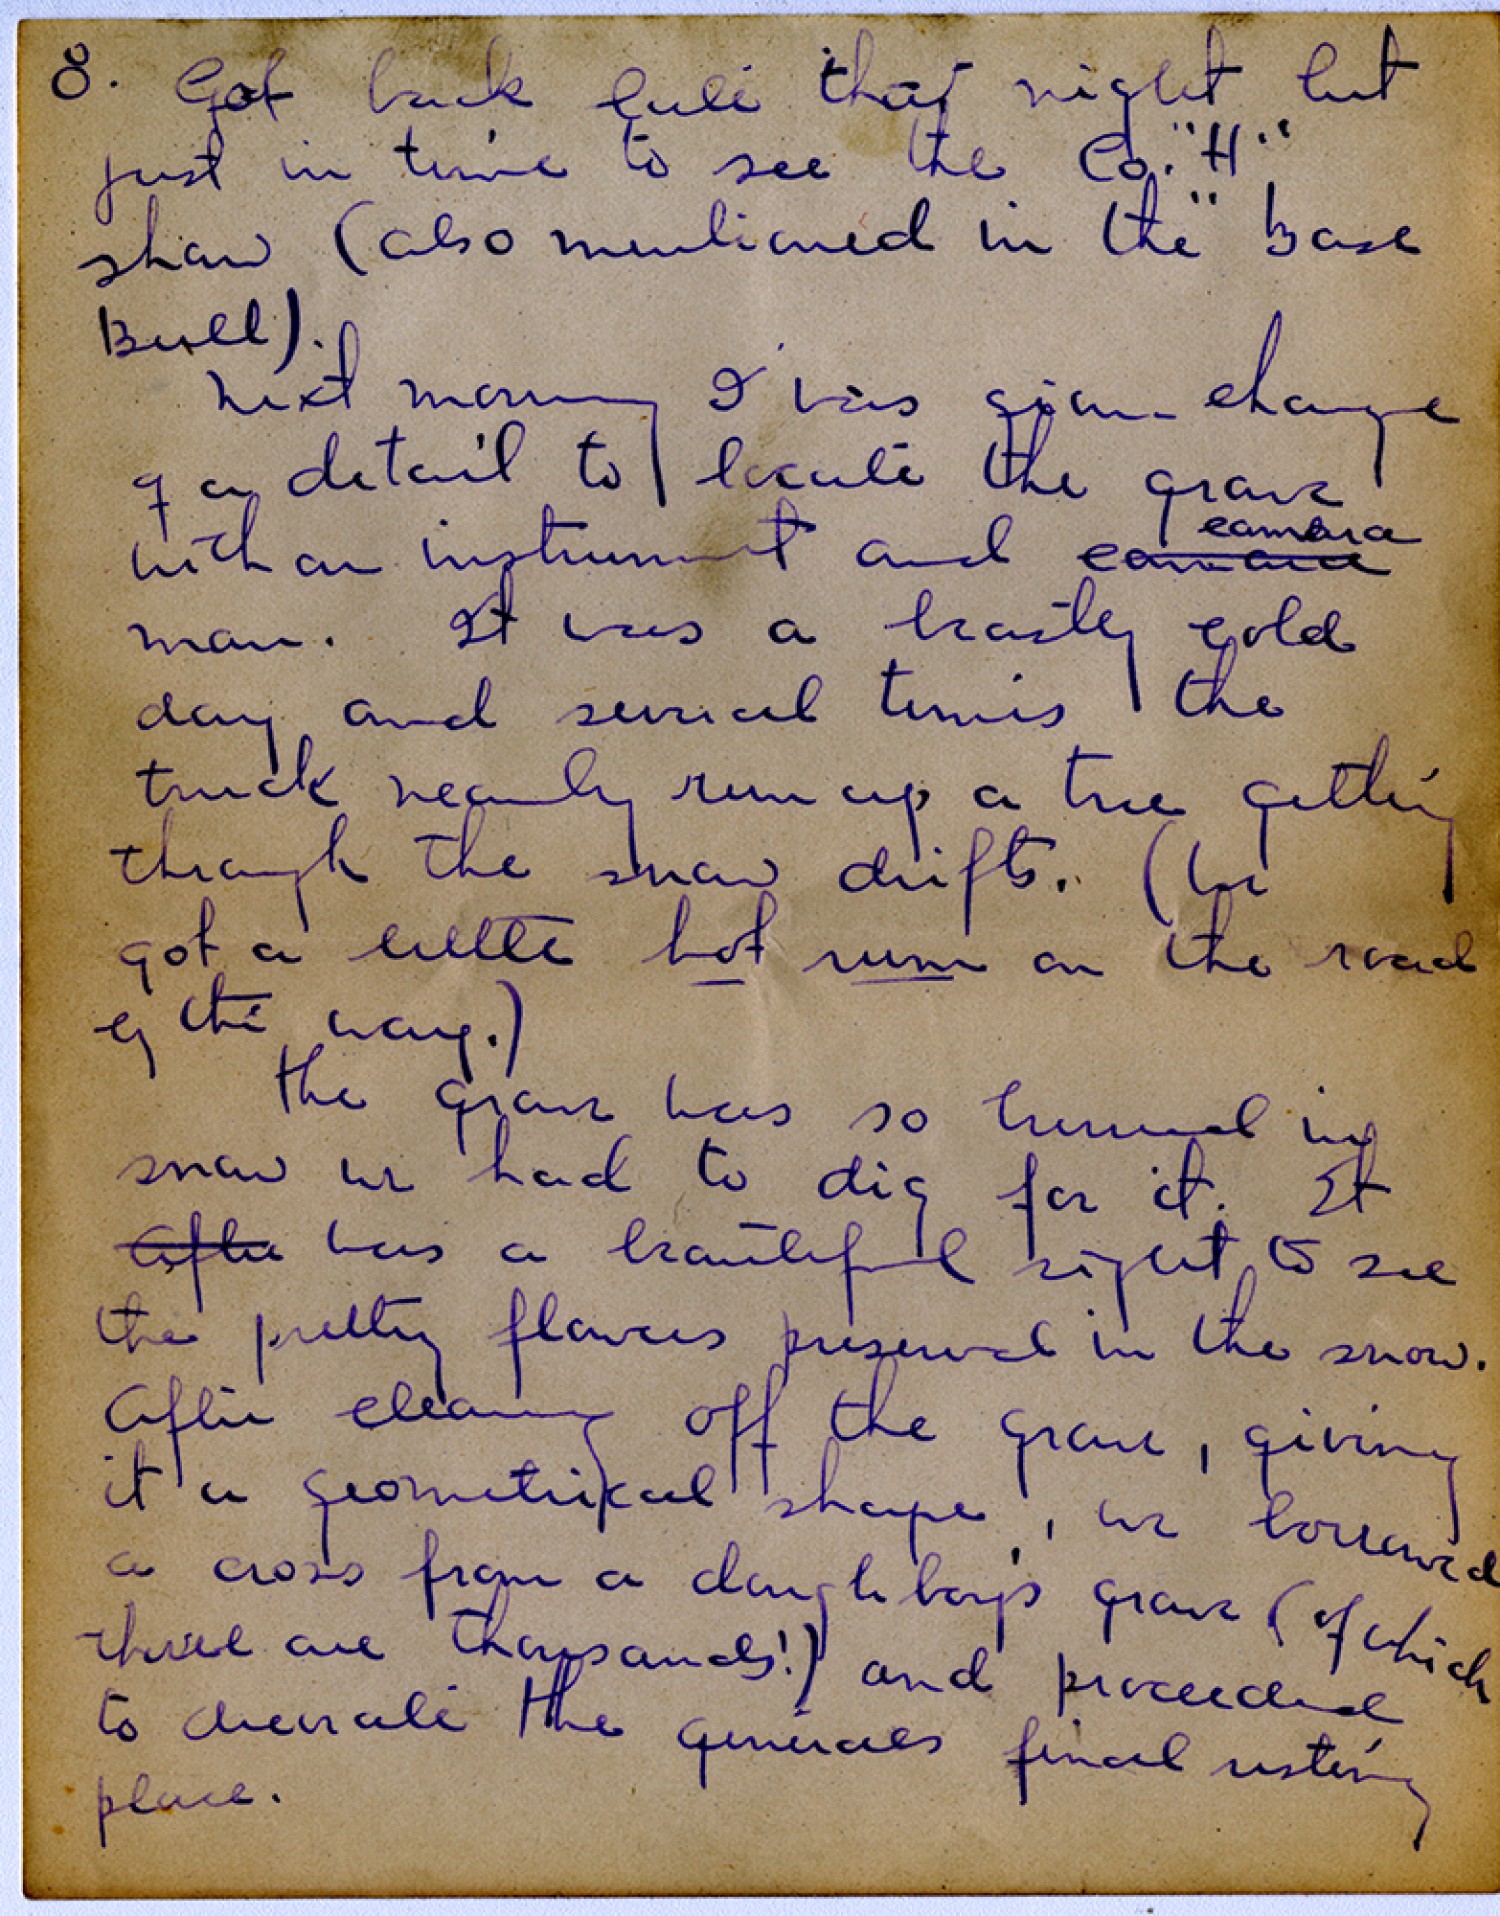 8. Got back late that night but
just in time to see the Co. "H."
show (also mentioned in the "Base
Bull).
Next morning I was given charge
of a detail to locate the grave
with an instrument and camara camera
man. It was a beastly cold
day and several times the
truck nearly run up a tree getting
through the snow drifts. (We
got a little hot rum on the road
by the way.)
The grave was so burried in
snow we had to dig for it. It
After was a beautiful sight to see
the pretty flowers preserved in the snow.
After cleaning off the grave, giving
it a geometrical shape, we borrowed
a cross from a doughboy's grave (of which
there are thousands!) and proceeded
to decorate the generals final resting
place.